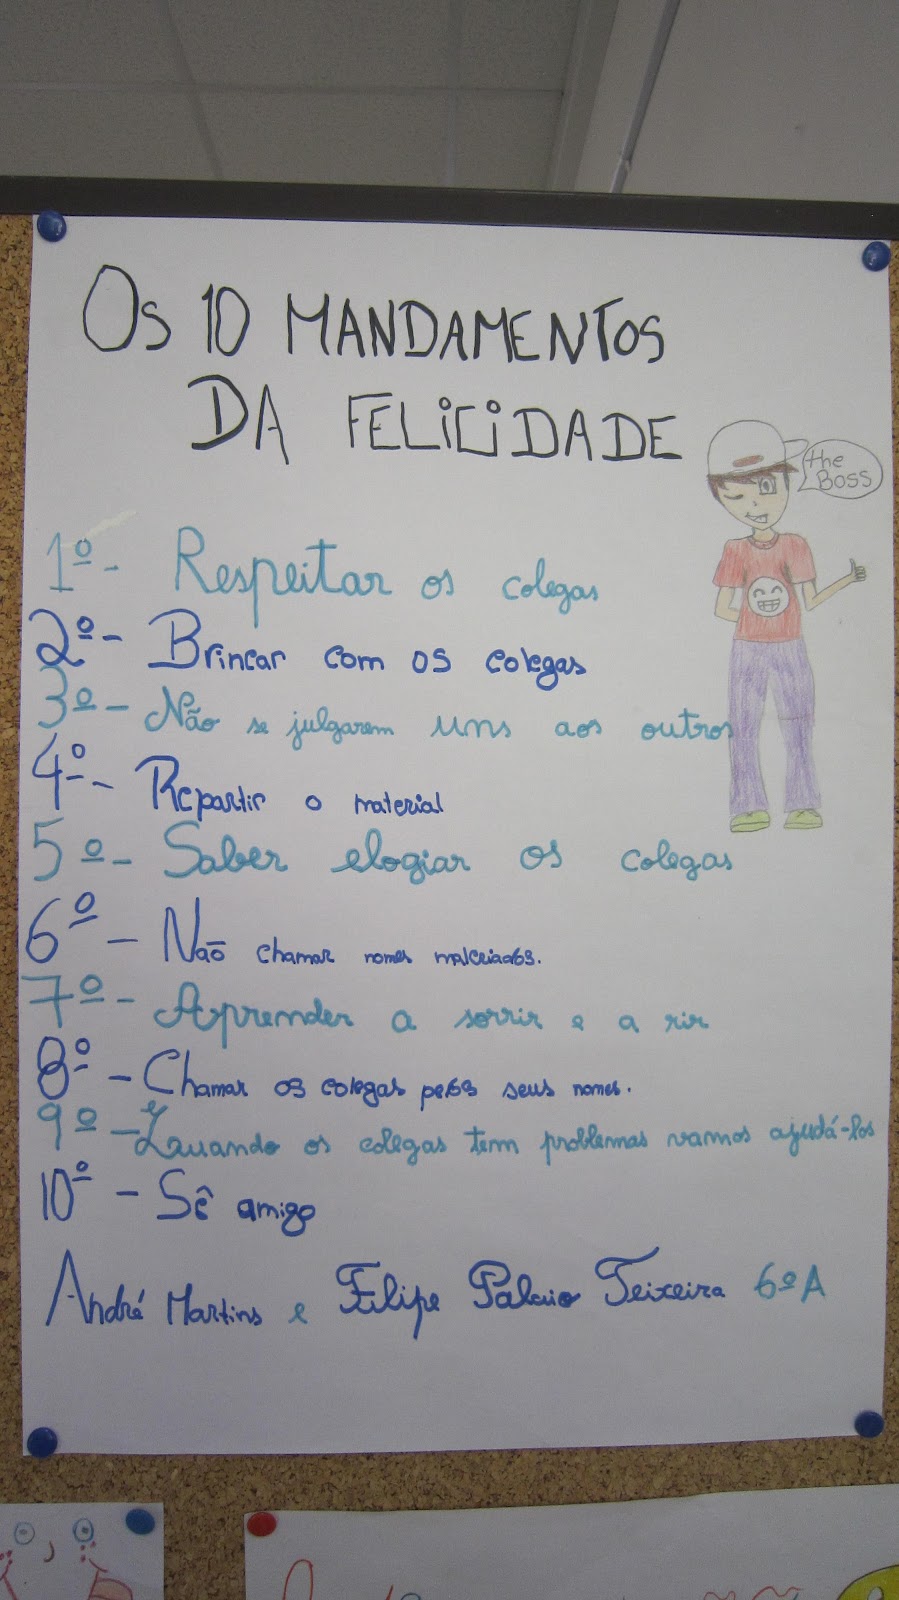 Os 10 MANDAMENTOS
DA FELICIDADE
the
Boss
1º - Respeitar os colegas
2º - Brincar com os colegas
3º - Não se julgarem uns aos outros
4º - Repartir o material
5º - Saber elogiar os colegas
6º - Não chamar nomes malcriados.
7º - Aprender a sorrir e a rir
8º - Chamar os colegas pelos seus nomes.
9º - Quando os colegas tem problemas vamos ajudá-los
10º - Sê amigo
André Martins e Filipe Palaio Teixeira 6ºA